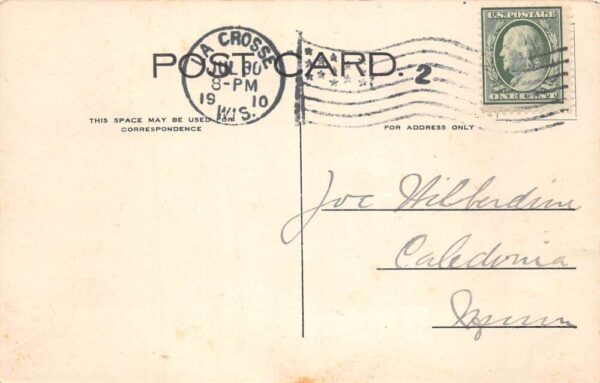 LA CROSSE
JUL 30
8-PM
19 10
WIS.
POST CARD.
2
U.S. POSTAGE
ONE CENT
THIS SPACE MAY BE USED FOR
CORRESPONDENCE
FOR ADDRESS ONLY
Joe Wilberdine
Caledonia
Minn